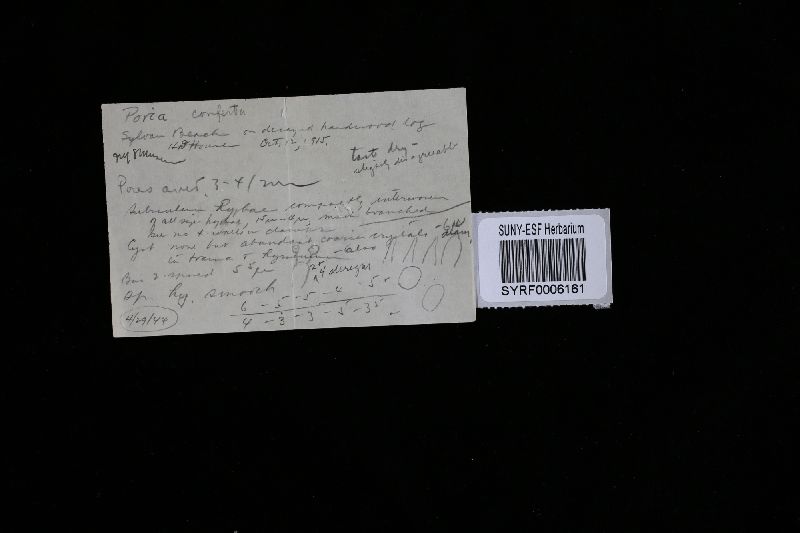 Poria conferta
Sylvan Beach on decayed hardwood log
HD House Oct, 12, 1915.
taste dry -
slightly disagreeable
Pores aver, 3-4/mm
Subiculum hyphae compactly interwoven
of all size hyphae, much branched
but no walls or clamps
Cyst none but abundant coarse crystals
in trama & hymenium also
Bas 2-spored
Sp. hy. smooth
6 - 5 - 5 - 4 - 5
4 - 3 - 3 - 5 - 3
4/29/44
SUNY-ESF Herbarium
SYRF0006161